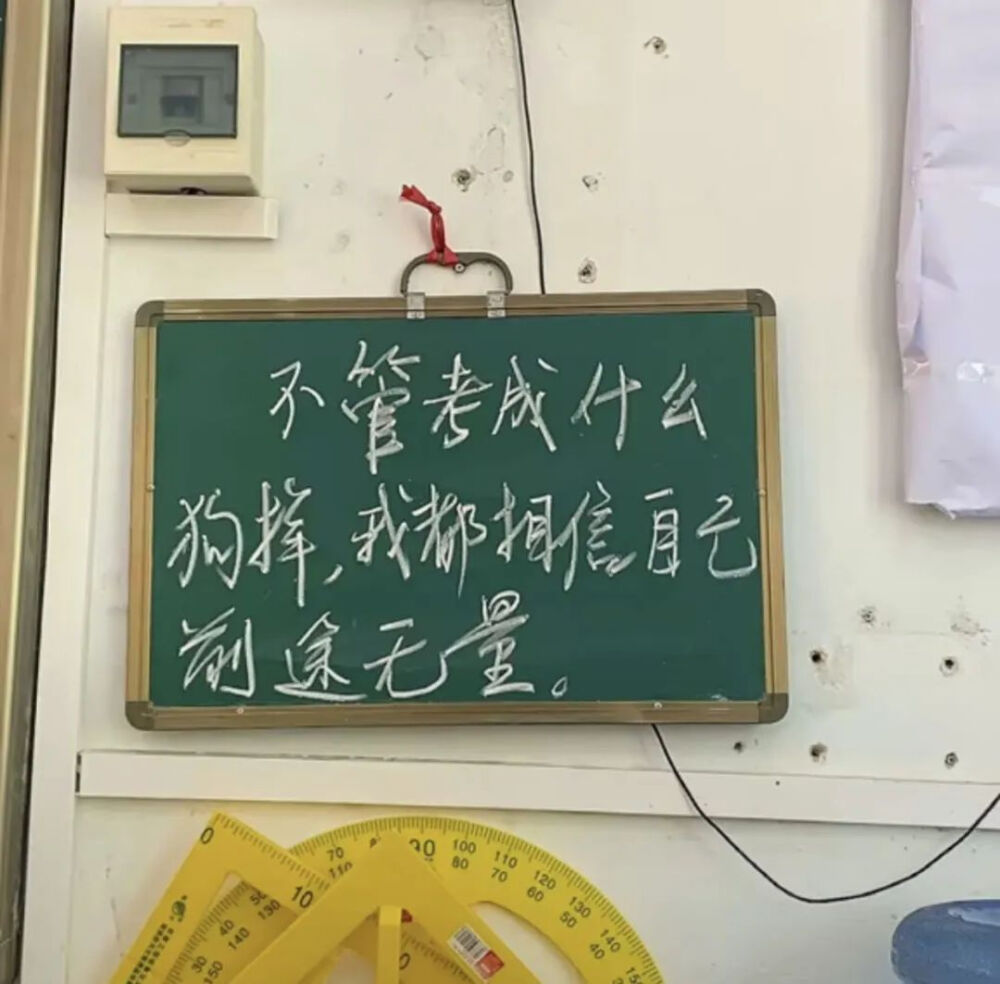 不管考成什么
狗样,我都相信自己
前途无量。
0
10
70
90
100
110
120
130
140
80
70
60
50
40
110
50
130
40
140
30
150
0